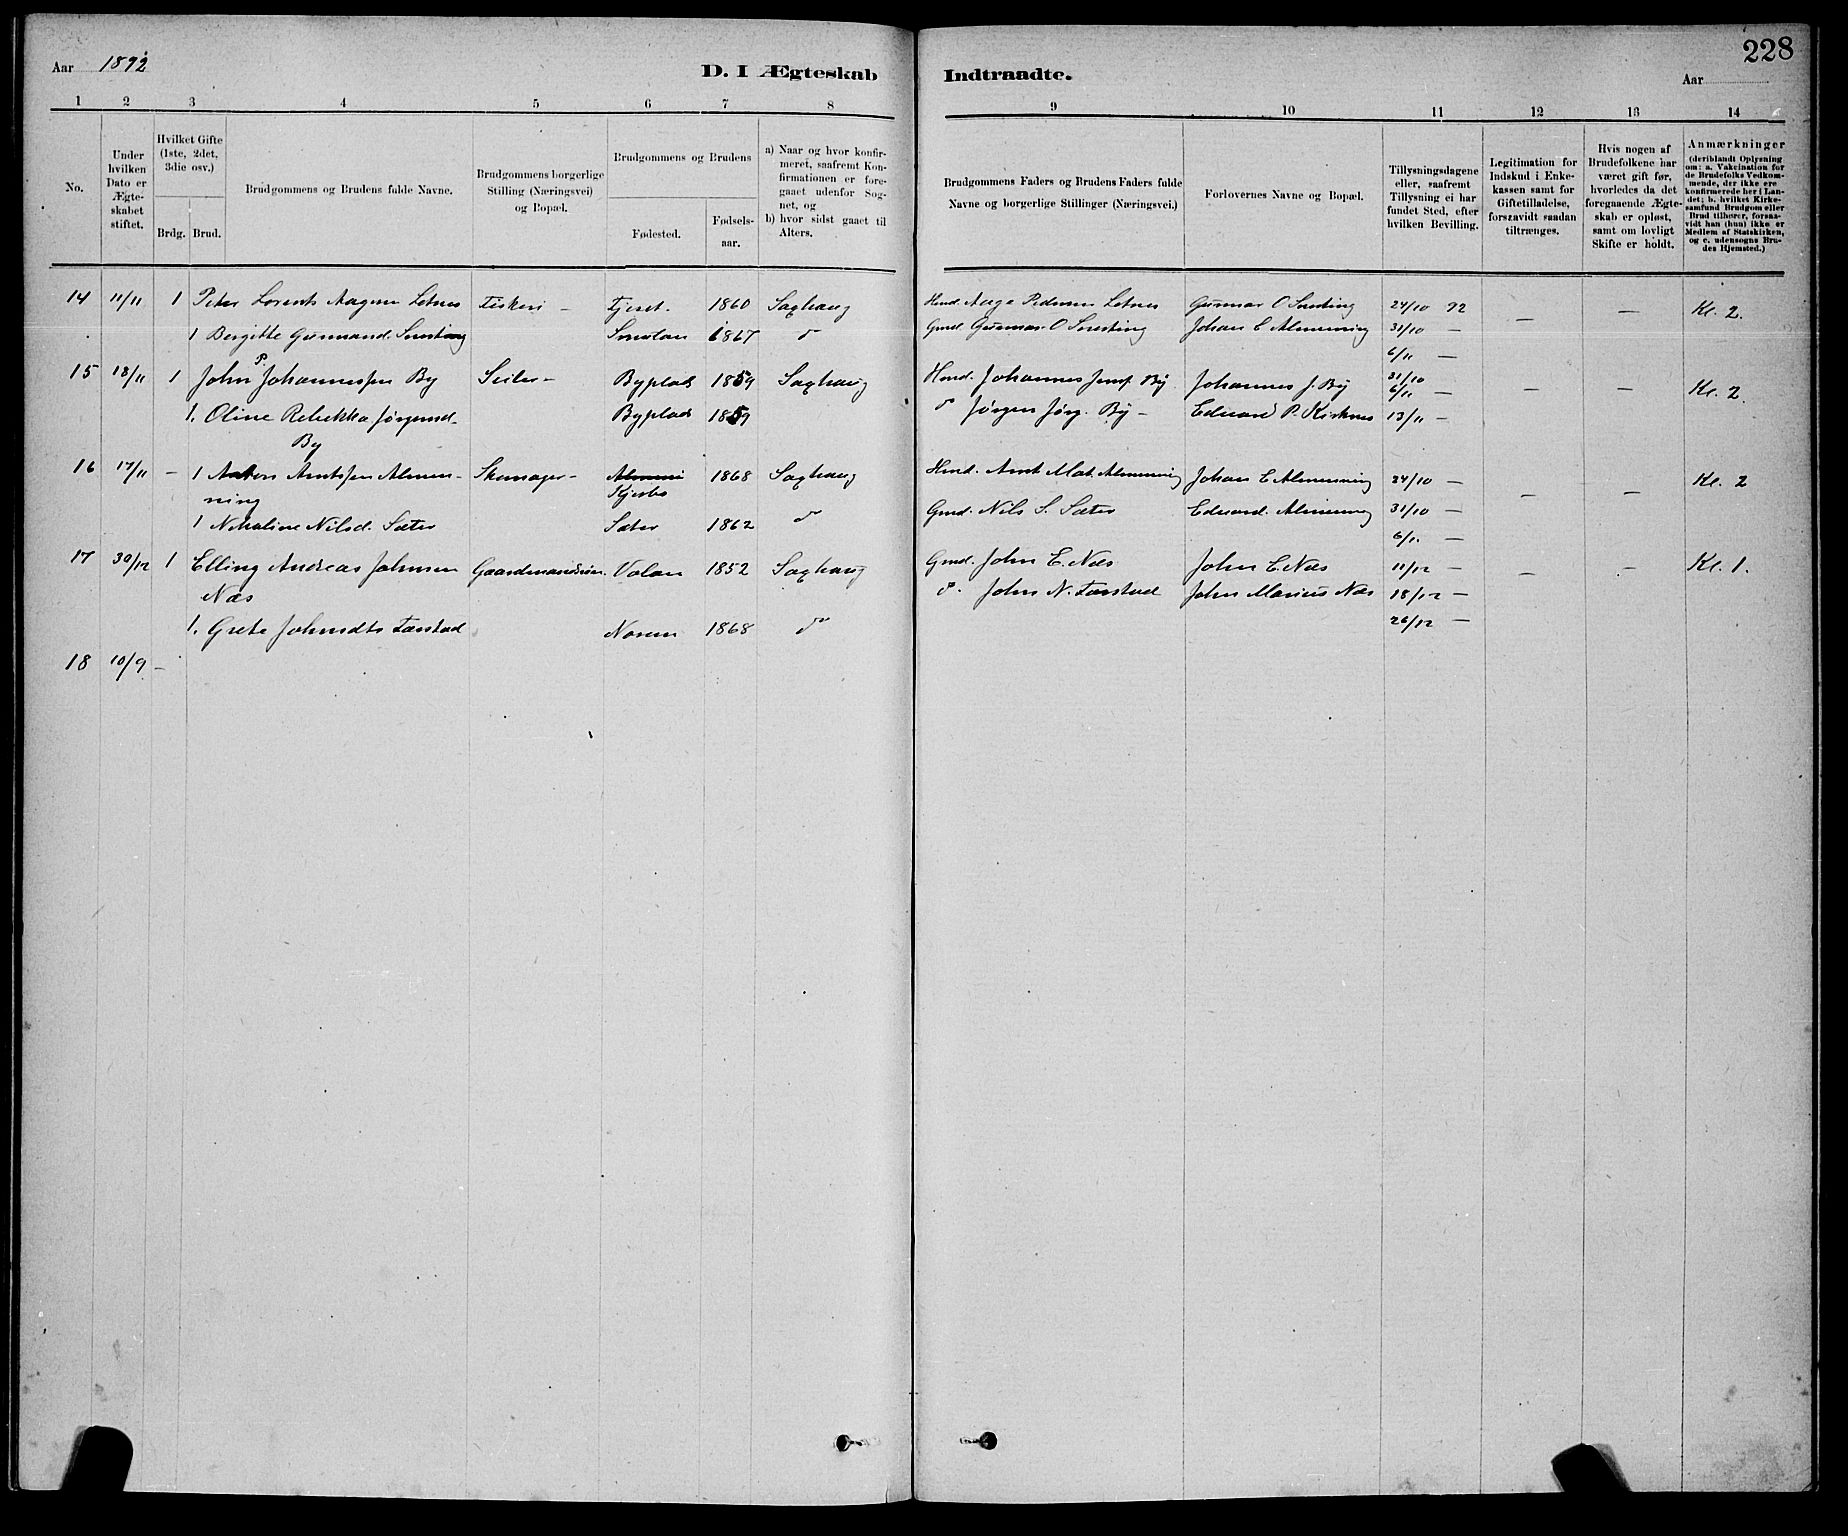 Aar 1892
D. I Ægteskab
Indtraadte.
228
Aar
1 2 3 4 5 6 7 8 9 10 11 12 13 14
No.
Under hvilken Dato er Ægteskabet stiftet.
Hvilket Gifte (1ste, 2det, 3die osv.)
Brdg. Brud.
Brudgommens og Brudens fulde Navne.
Brudgommens borgerlige Stilling (Næringsvei) og Bopæl.
Brudgommens og Brudens
Fødested.
Fødselsaar.
a) Naar og hvor konfirmeret, saafremt Konfirmationen er foregaaet udenfor Sognet, og
b) hvor sidst gaaet til Alters.
Brudgommens Faders og Brudens Faders fulde Navne og borgerlige Stillinger (Næringsvei.)
Forlovernes Navne og Bopæl.
Tillysningsdagene eller, saafremt Tillysning ei har fundet Sted, efter hvilken Bevilling.
Legitimation for Indskud i Enkekassen samt for Giftetilladelse, forsaavidt saadan tiltrænges.
Hvis nogen af Brudefolkene har været gift før, hvorledes da det foregaaende Ægteskab er opløst, samt om lovligt Skifte er holdt.
Anmærkninger (deriblandt Oplysning om: a. Vakcination for de Brudefolks Vedkommende, der ikke ere konfirmerede her i Landet; b. hvilket Kirkesamfund Brudgom eller Brud tilhører, forsaavidt han (hun) ikke er Medlem af Statskirken, og c. udensogns Brudes Hjemsted.)
14 11/11 1 Peter Lorents Aagesen Letnes Fiskeri – 1860 Saxhaug Hmd. Aage Pedersen Letnes Gunnar O 24/10 92 – – Kl. 2.
1 Bergitte 1867 d Gmd. Gunnar O Johan E Almenning 31/10 –
6/11 –
15 18/11 1 John P Johannessen By Seiler – Byplads 1859 Saxhaug Hmd. Johannes By Johannes J. By 31/10 6/11 – – – Kl. 2.
1. Oline Rebekka Jørgensd. Byplads 1859 d Jørgen Jørg. By – Edvard P. Kirknes 13/11 –
By
16 17/11 – 1 Arntsen Almen- Skomager – 1868 Saxhaug Hmd. Arnt Mat. Almenning Johan E Almenning 24/10 – – – Kl. 2
ning
1 Nikoline Nilsd. Sæter Sæter 1862 d Gmd. Nils S. Sæter Edvard Almenning 31/10 –
6/11 –
17 30/12 1 Elling Andreas Johnsen Gaardmandssøn Volan 1852 Saxhaug Gmd. John E. Næs John E Næs 11/12 – – – Kl. 1.
Næs d. John N. John Marius Næs 18/12 –
1. Grete Johnsdtr Norem 1868 d 26/12 –
18 10/9 –